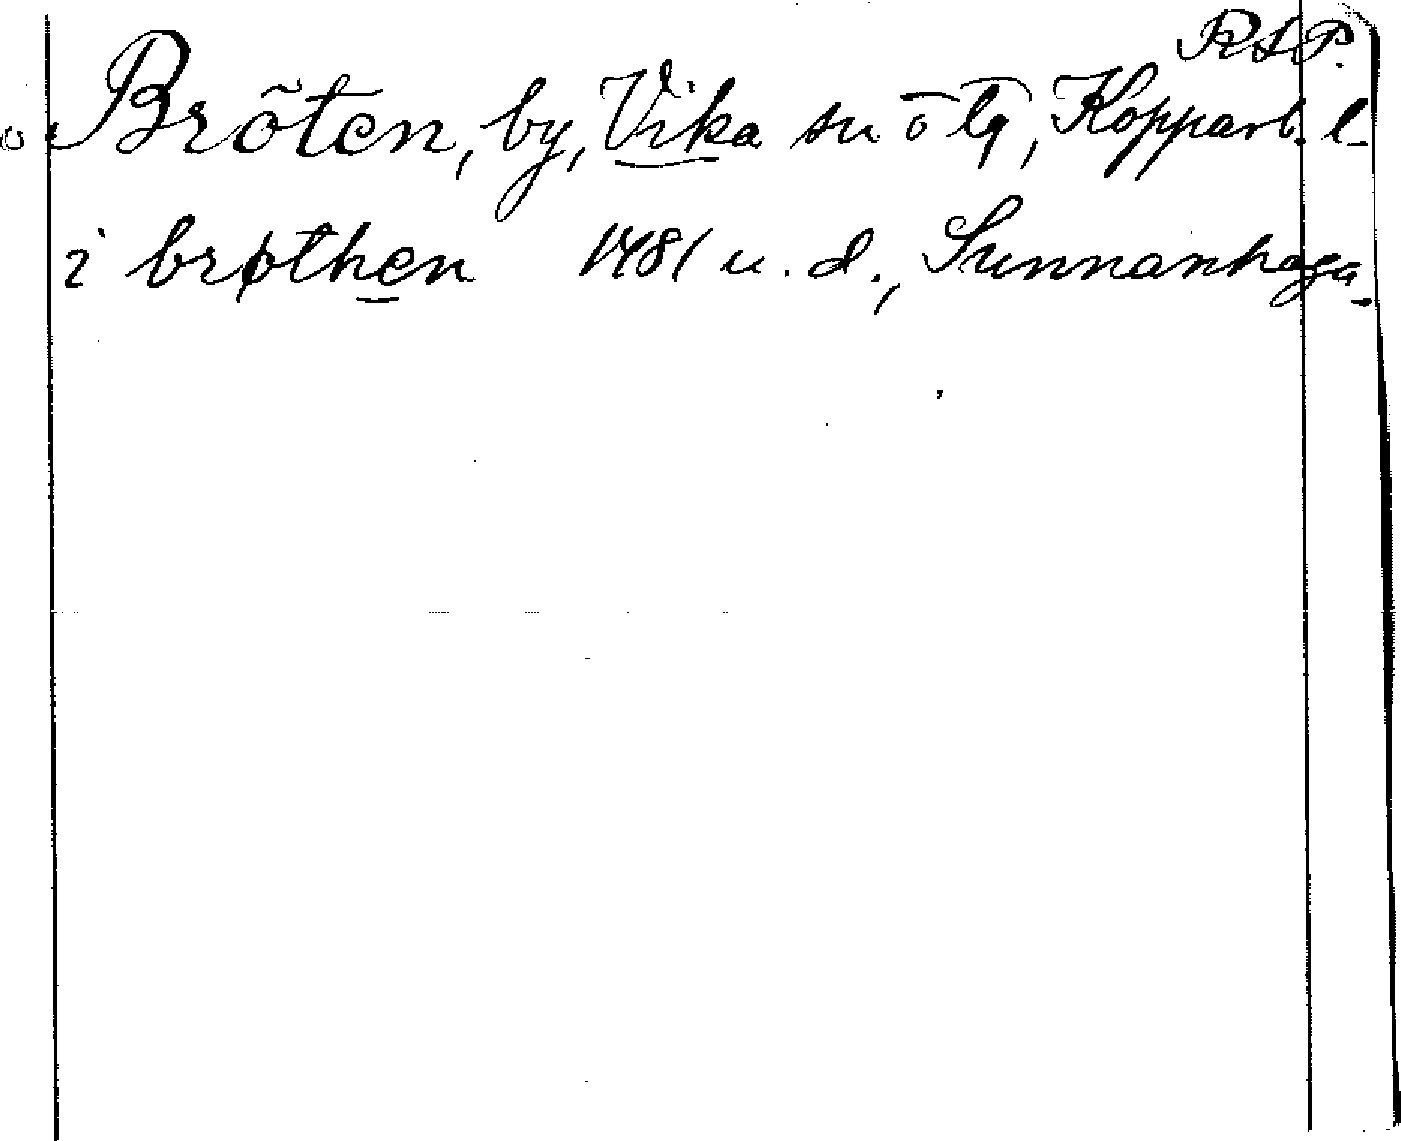 RAP.
Bröten, by, Vika sn o tg, Kopparb. l.
i brøthen 1481 u. d., Sunnanhaga.